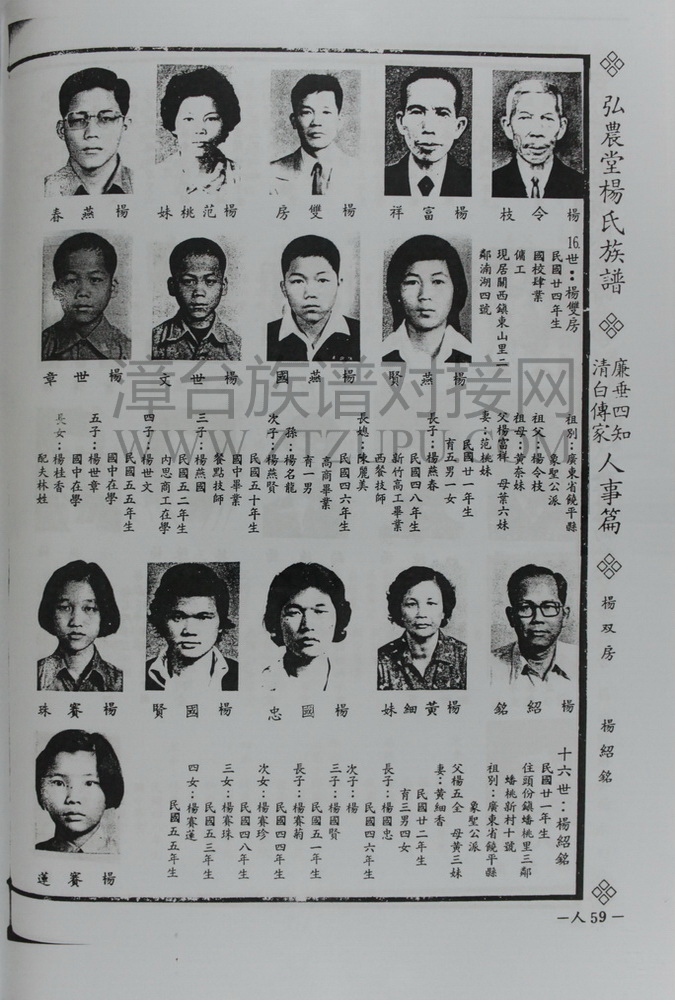 弘農堂楊氏族譜
廉垂四知
清白傳家
人事篇
楊双房
楊紹銘
楊令枝
楊富祥
楊雙房
楊范桃妹
楊燕春
16.世：楊雙房
民國廿四年生
國校肄業
傭工
現居關西鎮東山里二
鄰湳湖四號
楊燕賢
楊燕國
楊世文
楊世章
祖別：廣東省饒平縣
象聖公派
祖父：楊令枝
祖母：黃奈妹
父楊富祥　母葉六妹
妻：范桃妹
民國廿一年生
有五男一女
長子：楊燕春
民國四八年生
新竹高工畢業
西餐技師
長媳：陳麗美
民國四六年生
高商畢業
有一男
孫：楊名龍
次子：楊燕賢
民國五十年生
國中畢業
餐點技師
三子：楊燕國
民國五二年生
內思商工在學
四子：楊世文
民國五五年生
國中在學
五子：楊世章
國中在學
長女：楊桂香
配夫林姓
楊紹銘
楊黃細妹
楊國忠
楊國賢
楊賽珠
十六世：楊紹銘
民國廿一年生
住頭份鎮蟠桃里三鄰
蟠桃新村十號
祖別：廣東省饒平縣
象聖公派
父楊五全　母黃三妹
妻：黃細香
民國廿二年生
有三男四女
長子：楊國忠
民國四六年生
次子：楊
三子：楊國賢
民國五一年生
長子：楊賽菊
民國四四年生
次女：楊賽珍
民國四八年生
三女：楊賽珠
民國五三年生
四女：楊賽蓮
民國五五年生
楊賽蓮
—人59—
漳台族谱对接网
WWW.ZTZUPU.COM